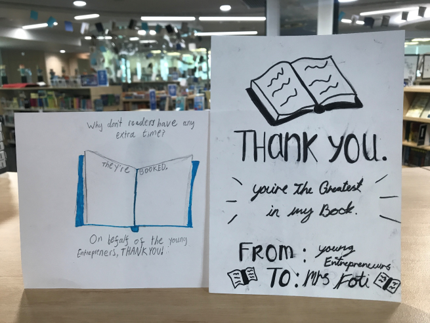 Why don't readers have any
extra time?
They're BOOKED.
On behalf of the young
Entreprners, THANK YOU!
THANK YOU.
you're the Greatest
in my Book.
FROM: young
Entrepreneurs
TO: Mrs Foti